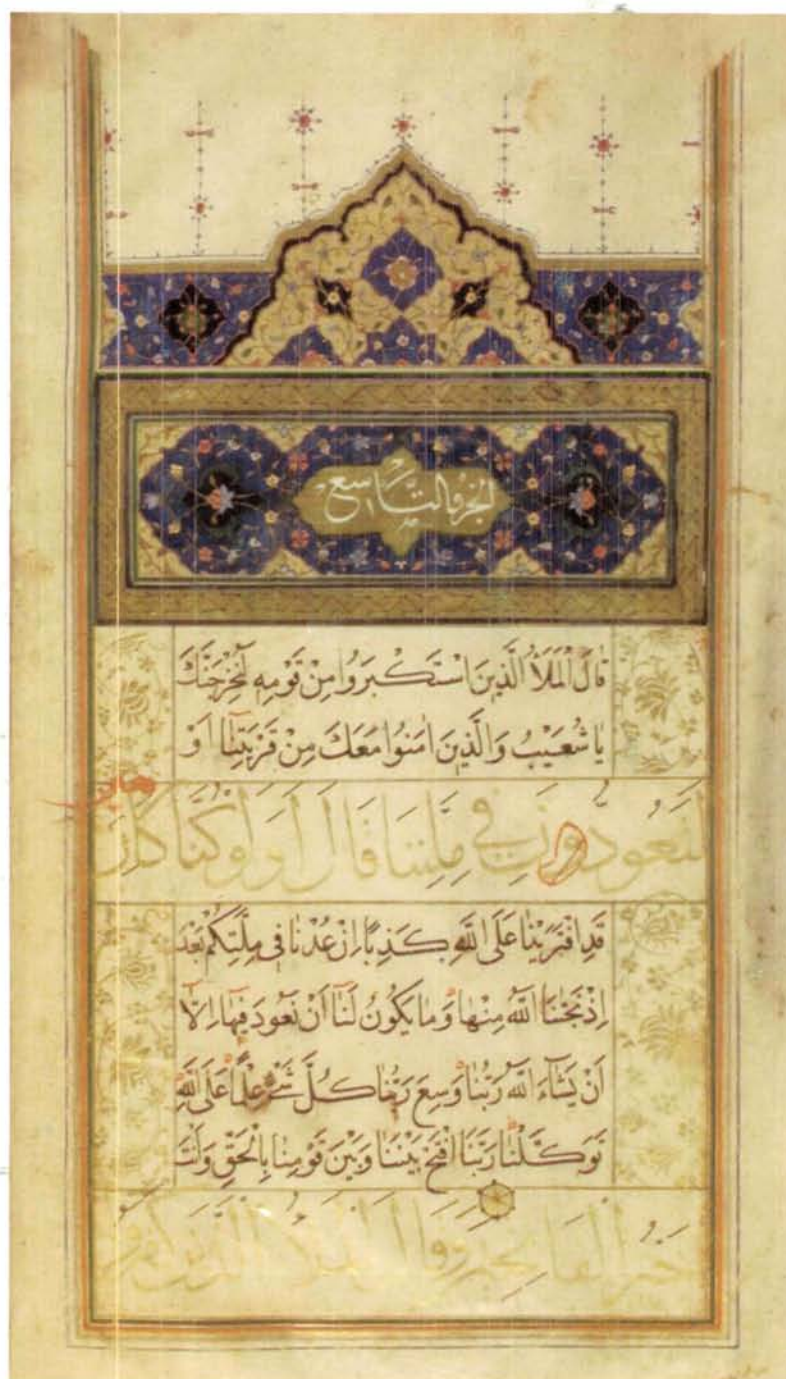 الجزو التاسع
قَالَ الْمَلَأُ الَّذِينَ اسْتَكْبَرُوا مِنْ قَوْمِهِ لَنُخْرِجَنَّكَ
يَا شُعَيْبُ وَالَّذِينَ اٰمَنُوا مَعَكَ مِنْ قَرْيَتِنَا اَوْ
لَتَعُودُنَّ فِي مِلَّتِنَا قَالَ اَوَلَوْ كُنَّا كَارِ
قَدِ افْتَرَيْنَا عَلَى اللّٰهِ كَذِبًا اِنْ عُدْنَا فِي مِلَّتِكُمْ بَعْدَ
اِذْ نَجّٰنَا اللّٰهُ مِنْهَا وَمَا يَكُونُ لَنَا اَنْ نَعُودَ فِيهَا اِلَّا
اَنْ يَشَاءَ اللّٰهُ رَبُّنَا وَسِعَ رَبُّنَا كُلَّ شَيْءٍ عِلْمًا عَلَى اللّٰهِ
تَوَكَّلْنَا رَبَّنَا افْتَحْ بَيْنَنَا وَبَيْنَ قَوْمِنَا بِالْحَقِّ وَاَنْتَ
خير الفاتحين وقال الملأ الذين